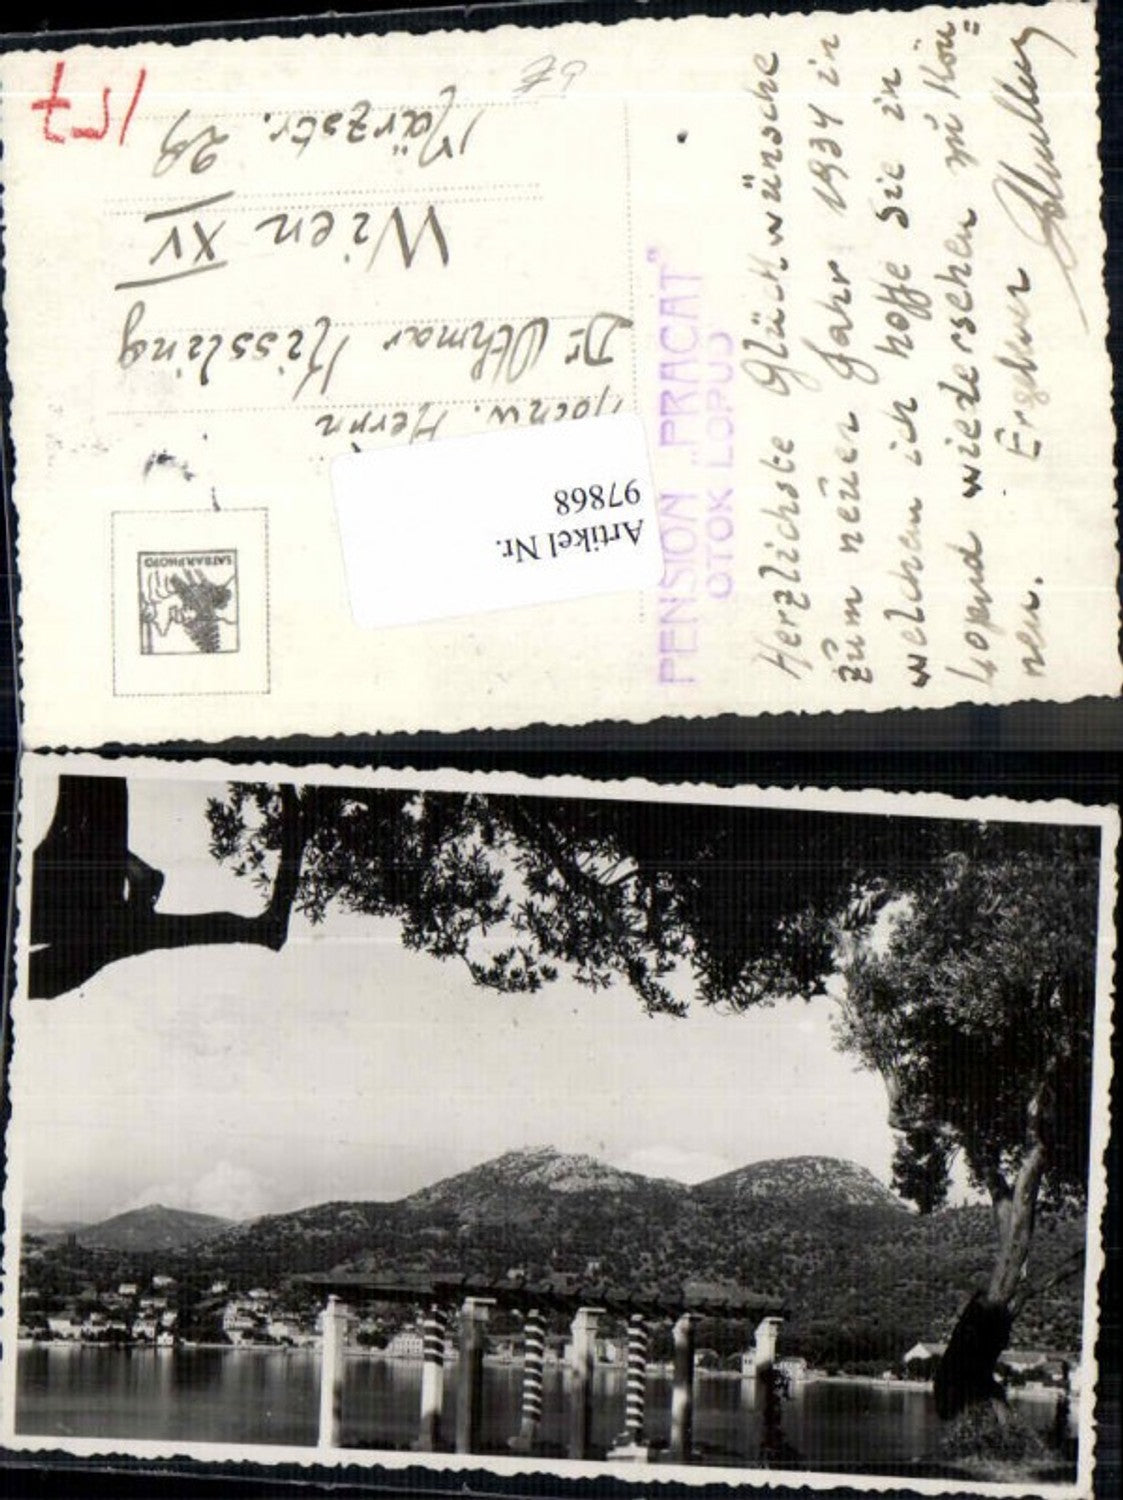 157
Hochw. Herrn
Dr. Othmar Kissling
Wien XV
Märzstr. 29
Artikel Nr.
97868
SATBARPHOTO
PENSION „PRACAT”
OTOK LOPUD
Herzlichste Glückwünsche
zum neuen Jahr 1934 in
welchem ich hoffe Sie in
Lopud wiedersehen zu kön=
nen. Ergebener